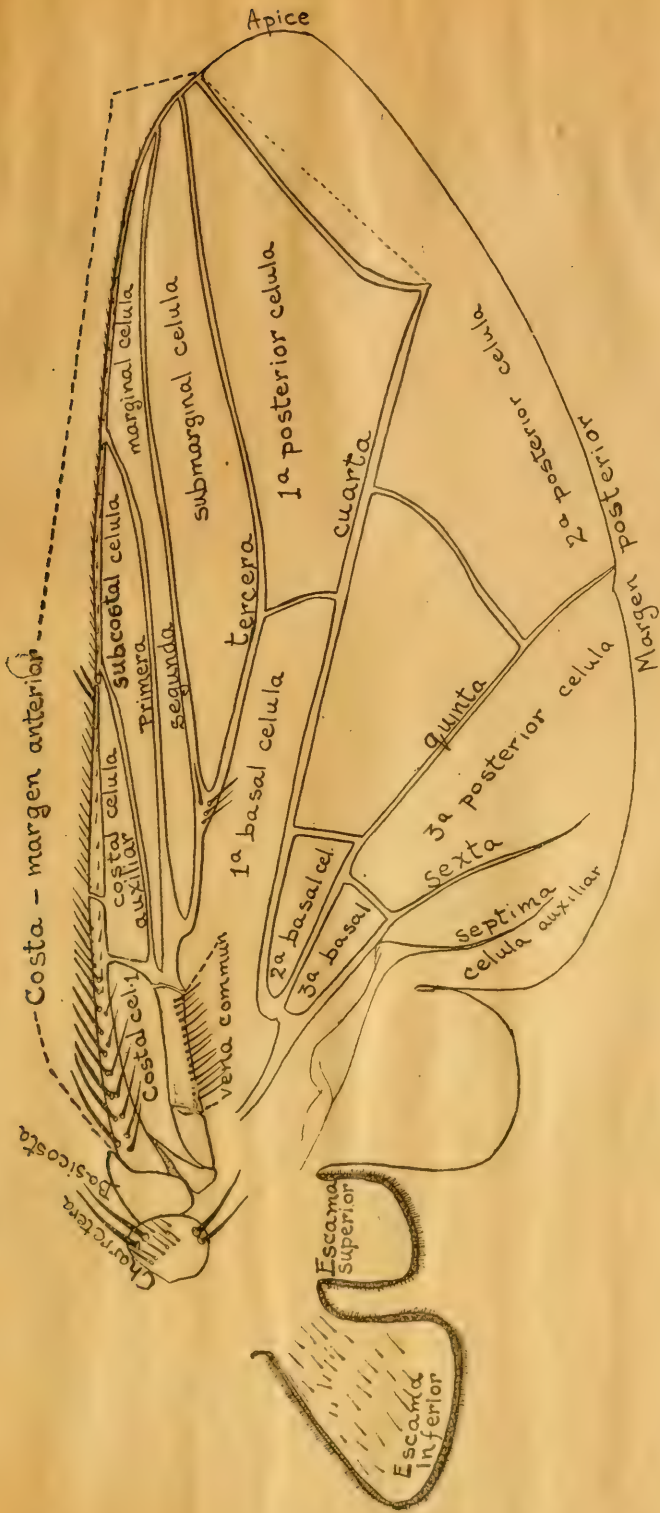 Apice
Costa - margen anterior
marginal celula
submarginal celula
1a posterior celula
2a posterior celula
Margen posterior
subcostal celula
Primera
segunda
tercera
cuarta
costal celula
auxiliar
1a basal celula
quinta
3a posterior celula
2a basal cel.
3a basal
sexta
septima
celula auxiliar
Costal cel.
vena commun
Basicosta
Charretera
Escama
superior
Escama
inferior